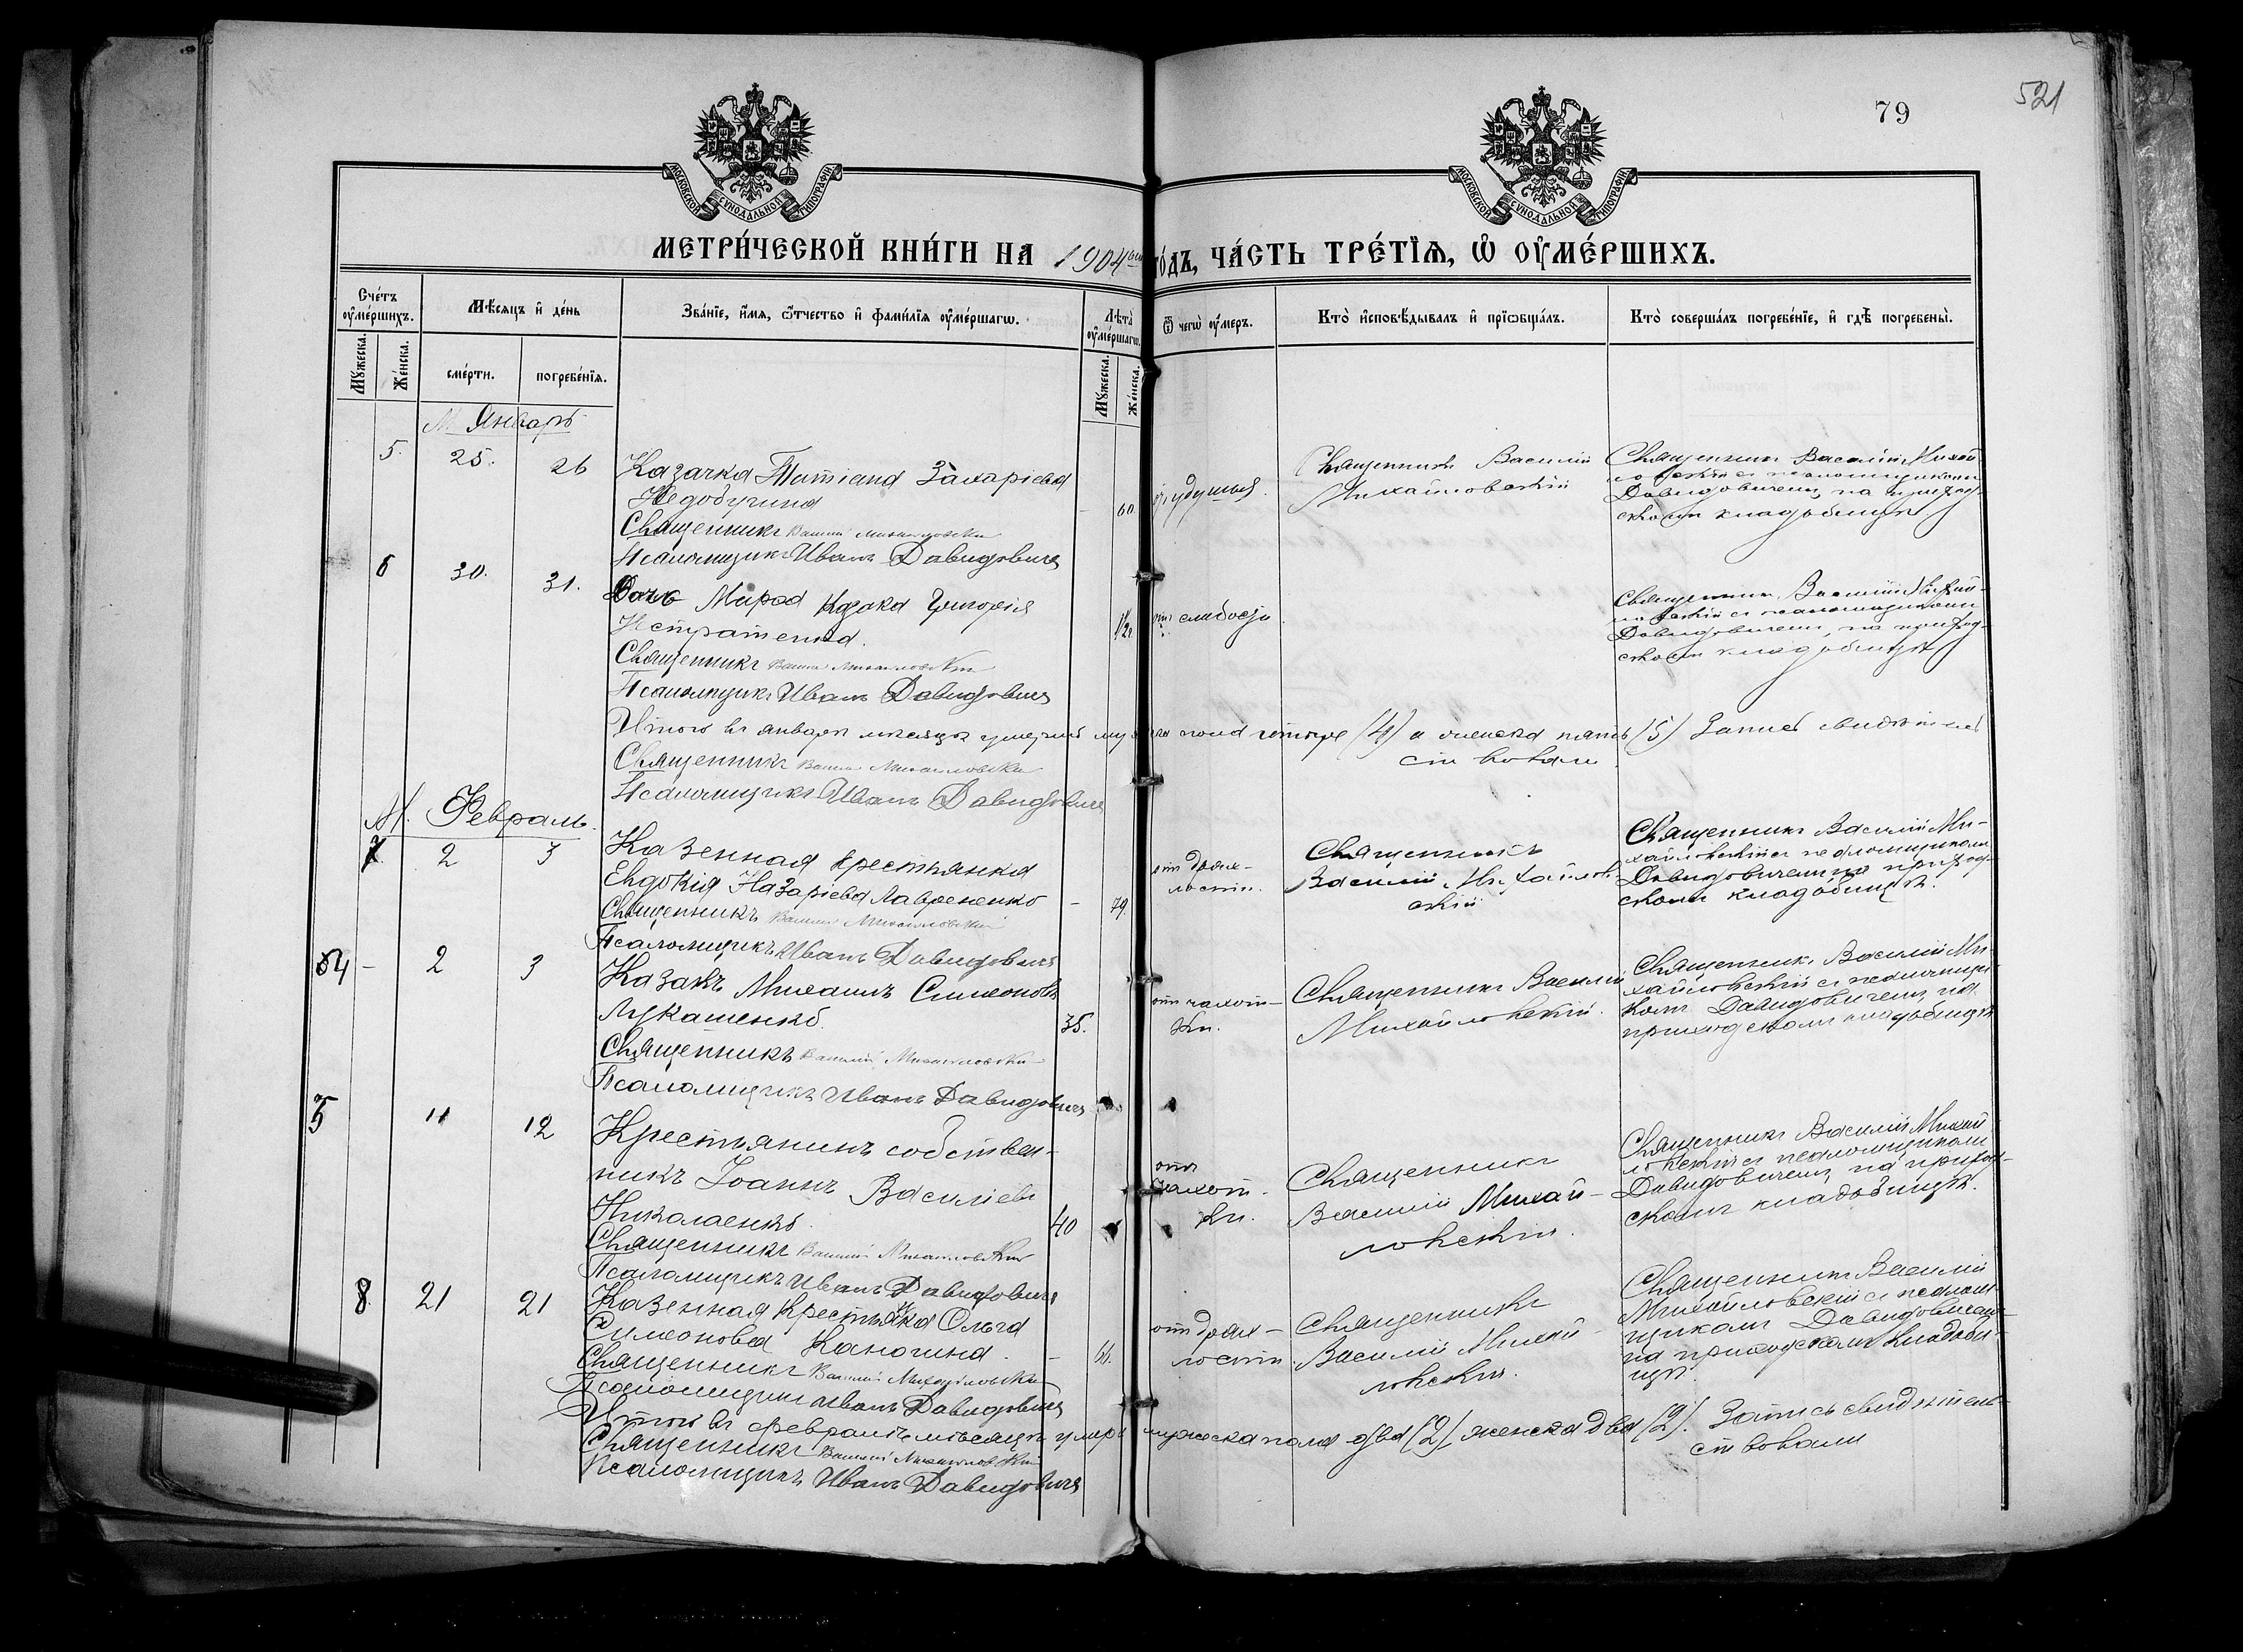 521
79
МОСКОВСКОЙ СѴНОДАЛЬНОЙ ТИПОГРАФІИ
МОСКОВСКОЙ СѴНОДАЛЬНОЙ ТИПОГРАФІИ
МЕТРИ́ЧЕСКОЙ КНИ́ГИ НА 1904 ГО́ДЪ, ЧА́СТЬ ТРЕ́ТІѦ, Ѿ ОУ҆МЕ́РШИХЪ.
Сче́тъ оу҆ме́ршихъ.
Мѣ́сяцъ и҆ де́нь
Зва́нїе, и҆́мя, ѻ҆́тчество и҆ фами́лїя оу҆ме́ршагѡ.
Лѣта̀ оу҆ме́ршагѡ.
Ѿ чегѡ̀ оу҆́меръ.
Кто̀ и҆сповѣ́дывалъ и҆ прїѡбща́лъ.
Кто̀ соверша́лъ погребе́нїе, и҆ гдѣ̀ погребены̀.
Мꙋ́жеска.
Же́нска.
сме́рти.
погребе́нїя.
Мꙋ́жеска.
Же́нска.
М. Январь
5. 25. 26
Казачка Татіана Захаріева
Недобугина
Священникъ Василій Михайловскій
Псаломщикъ Иванъ Давидовичъ
- 60.
удушья.
Священникъ Василій
Михайловскій
Священникъ Василій Михай-
ловскій съ псаломщикомъ
Давидовичемъ, на приход-
скомъ кладбищѣ
6 30. 31.
Дочь Марѳа казака Григорія
Истратенка.
Священникъ Василій Михайловскій
Псаломщикъ Иванъ Давидовичъ
отъ слабости
Священникъ Василій Михай-
ловскій съ псаломщикомъ
Давидовичемъ, на приход-
скомъ кладбищѣ
Итого въ январѣ мѣсяцѣ умерло мужеска пола четыре (4) и женска пять (5) Запись свидѣтель-
ствовали
Священникъ Василій Михайловскій
Псаломщикъ Иванъ Давидовичъ
М. Февраль.
7 2 3
Казенная крестьянка
Евдокія Назаріева Лавріненко
Священникъ Василій Михайловскій
Псаломщикъ Иванъ Давидовичъ
- 79.
отъ дрях-
лости.
Священникъ
Василій Михайлов-
скій
Священникъ Василій Ми-
хайловскій съ псаломщикомъ
Давидовичемъ на приход-
скомъ кладбищѣ.
4 - 2 3
Казакъ Михаилъ Симеоновъ
Лукашенко.
Священникъ Василій Михайловскій
Псаломщикъ Иванъ Давидовичъ
35.
отъ чахот-
ки.
Священникъ Василій
Михайловскій.
Священникъ Василій Ми-
хайловскій съ псаломщи-
комъ Давидовичемъ, на
приходскомъ кладбищѣ
5 11 12
Крестьянинъ собствен-
никъ Іоаннъ Василіевъ
Николаенко.
Священникъ Василій Михайловскій
Псаломщикъ Иванъ Давидовичъ
40
отъ
чахот-
ки.
Священникъ
Василій Михай-
ловскій.
Священникъ Василій Михай
ловскій съ псаломщикомъ
Давидовичемъ, на приход-
скомъ кладбищѣ.
8. 21 21
Казенная крестьянка Ольга
Симеонова Канюгина.
Священникъ Василій Михайловскій
Псаломщикъ Иванъ Давидовичъ
- 66.
отъ дрях-
лости.
Священникъ
Василій Михай-
ловскій.
Священникъ Василій
Михайловскій съ псалом-
щикомъ Давидовичемъ
на приходскомъ кладби-
щѣ.
Итого въ февралѣ мѣсяцѣ умерло мужеска пола два (2) женска два (2). Запись свидѣтель-
ствовали
Священникъ Василій Михайловскій
Псаломщикъ Иванъ Давидовичъ